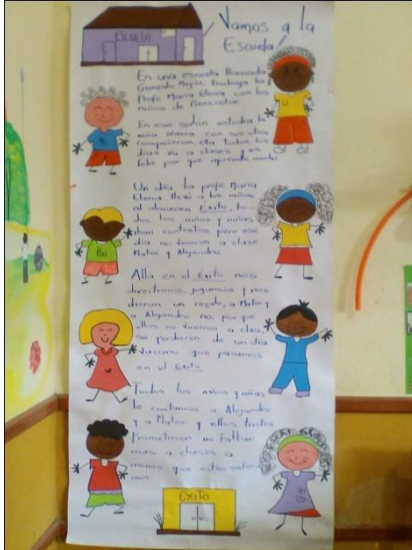 Escuela
Vamos a la
Escuela!
En una escuela llamada
Gonzalo Mejía trabaja la
Profe María Elena con los
niños de Preescolar
En ese salón estudia la
niña con sus otros
compañeros, ella todos los
días va a clases y es
feliz por que aprende mucho
Un día la profe María
Elena llevó a los niños
al almacen Exito, to-
dos los niños y niñas
iban contentos pero ese
día no vinieron a clase
Mateo y Alejandro
Alla en el Exito nos
divertimos, jugamos y nos
dieron un regalo, a Mateo y
a Alejandro no, por que
ellos no vinieron a clase,
se perdieron de un día
bacano que pasamos
en el Exito
Todos los niños y niñas
le contamos a Alejandro
y a Mateo y ellos tristes
Prometieron no faltar
mas a clases a
menos que esten enfer-
mos.
EXITO